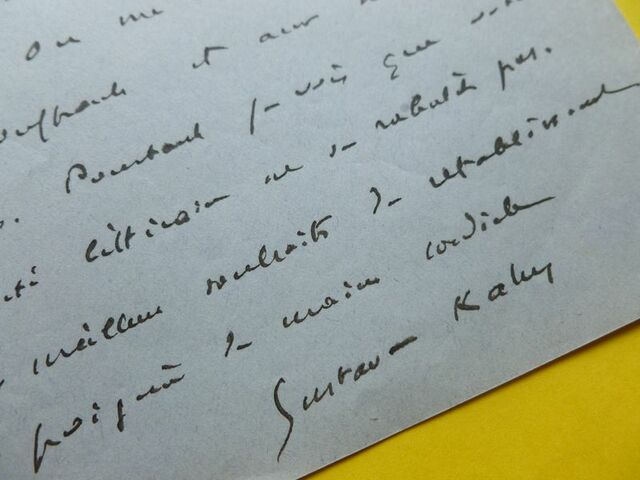 on me
souffrante et avez
Pourtant je vois que votre
littéraire ne se rabat pas.
meilleurs souhaits de rétablissement
poignée de main cordiale
Gustave Kahn